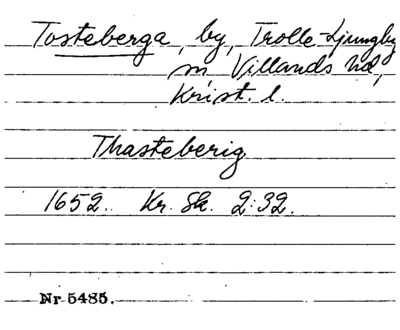 Tosteberga, by, Trolle Ljungby
sn, Villands hd,
Krist. l.
Thasteberig
1652. Kr. Sk. 2:32.
Nr 5485.